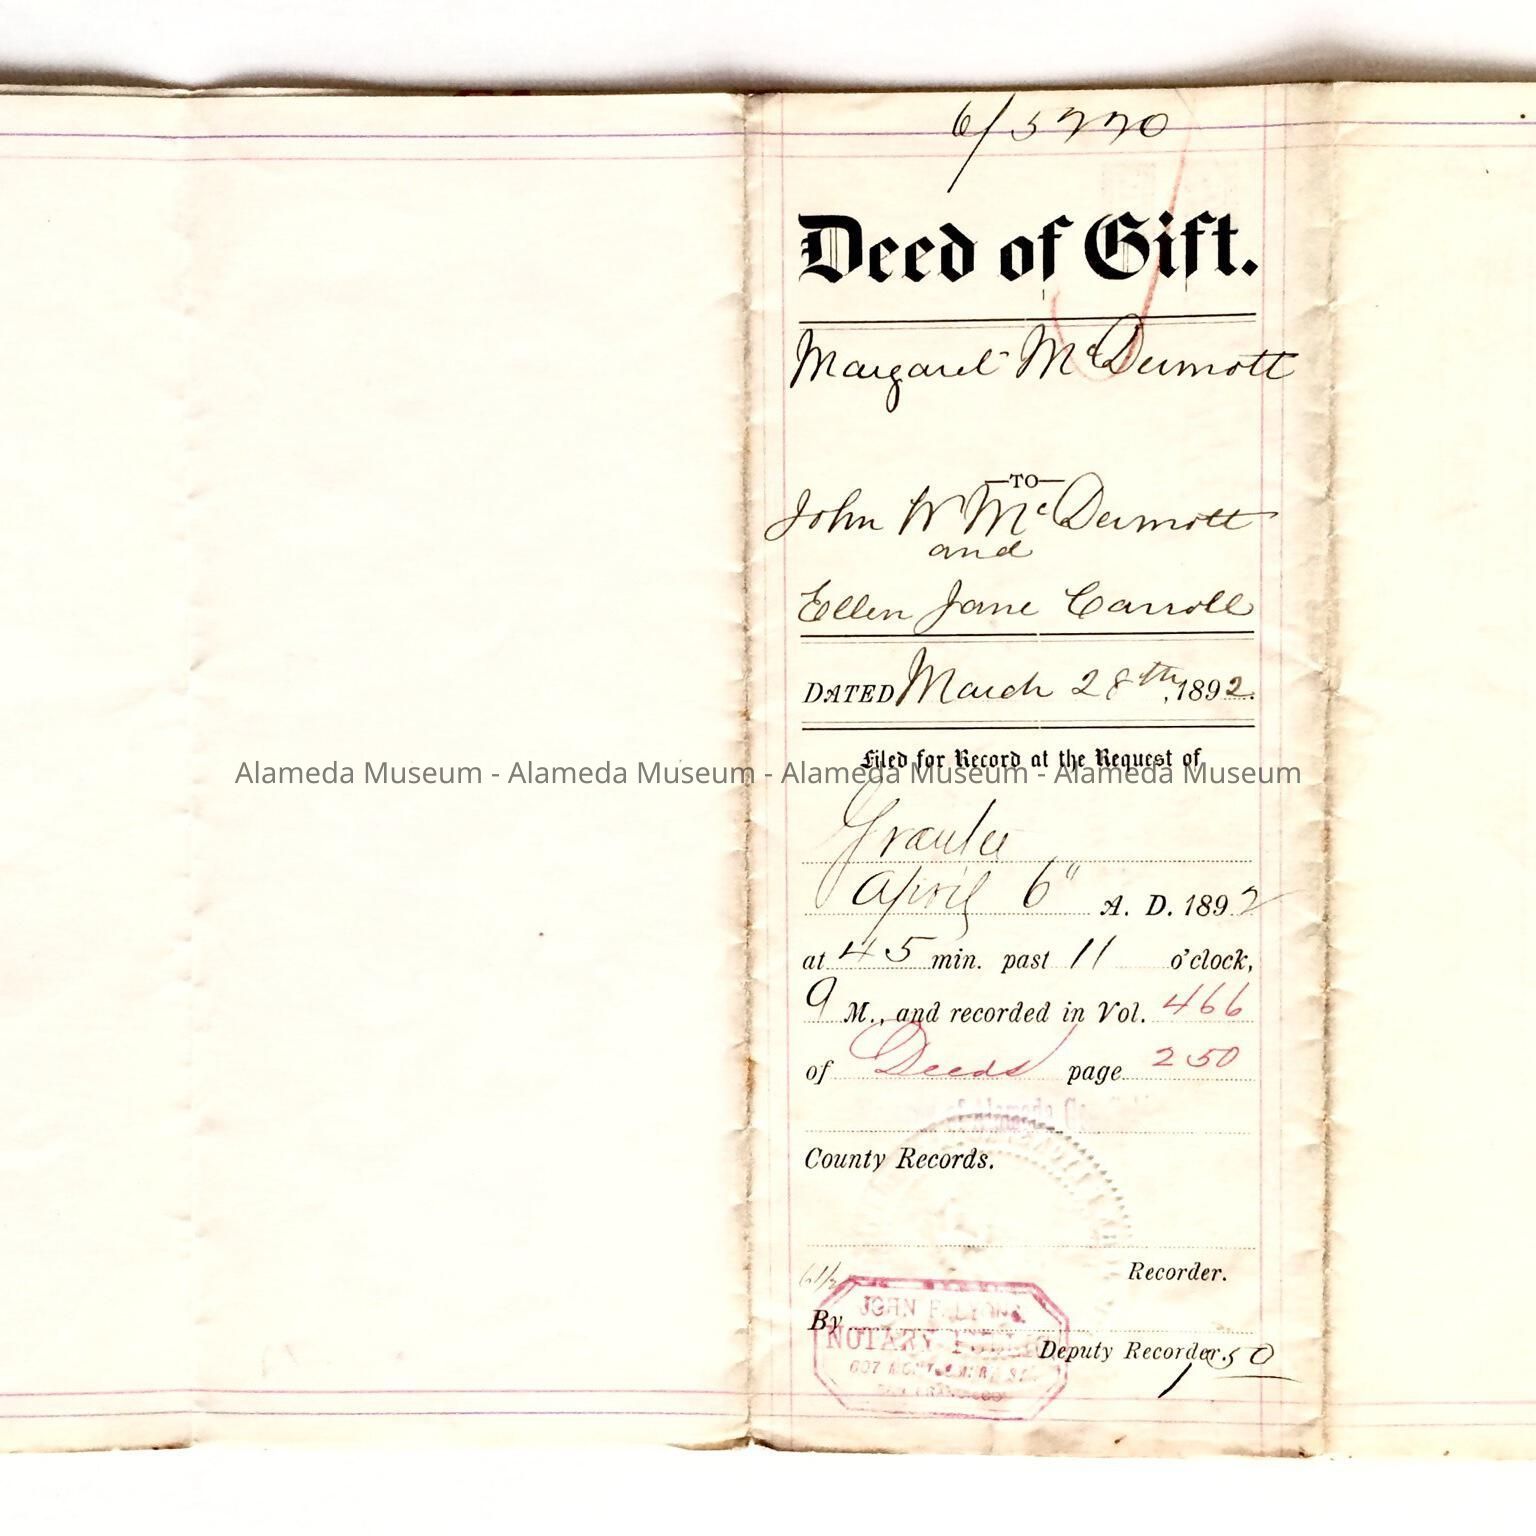 6/5770
Deed of Gift.
Margaret McDermott
—TO—
John W McDermott
and
Ellen Jane Carroll
DATED March 28th, 1892.
Filed for Record at the Request of
Alameda Museum - Alameda Museum - Alameda Museum - Alameda Museum
Grantee
April 6" A. D. 1892
at 45 min. past 11 o'clock,
a M., and recorded in Vol. 466
of Deeds page 250
County Records.
Recorder.
JOHN F. LYONS
By
NOTARY PUBLIC
Deputy Recorder.
607 MONTGOMERY ST.
1.50
SAN FRANCISCO